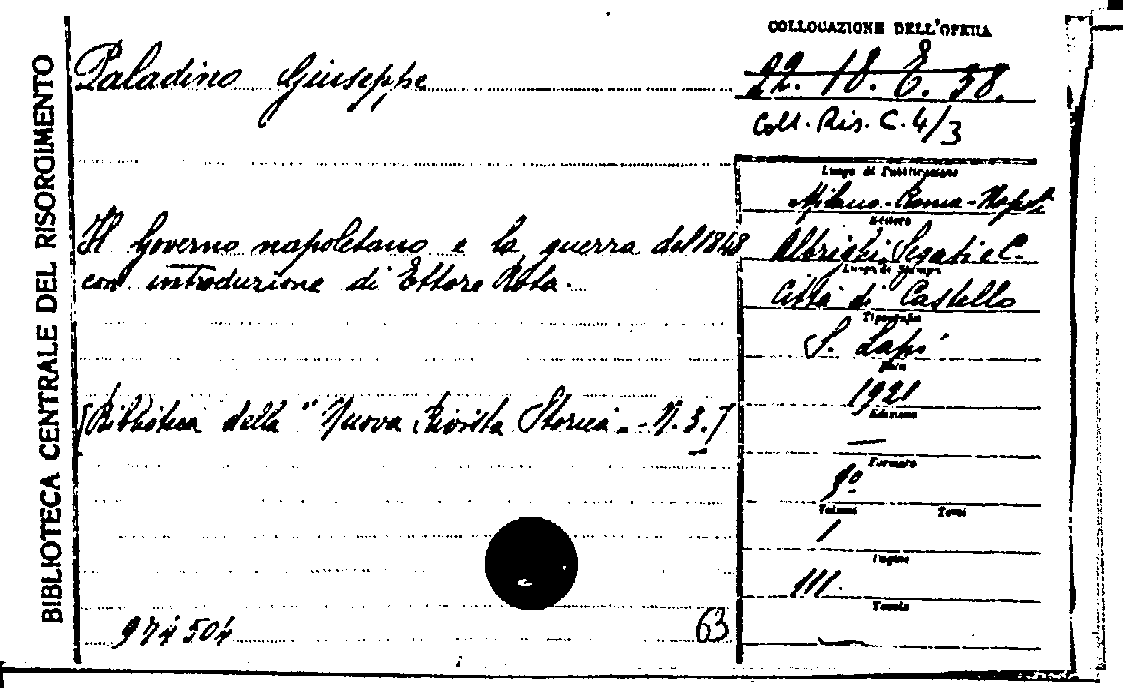 BIBLIOTECA CENTRALE DEL RISORGIMENTO
COLLOCAZIONE DELL'OPERA
22. 18. E. 38.
Coll. Ris. C. 4/3
Paladino Giuseppe
Il Governo napoletano e la guerra del 1848
con introduzione di Ettore Rota.
[Biblioteca della "Nuova Rivista Storica" - N. 3.]
974504
63
Luogo di Pubblicazione
Milano-Roma-Napoli
Editore
Albrighi, Segati e C.
Luogo di Stampa
Città di Castello
Tipografia
S. Lapi
Data
1921
Edizione
—
Formato
8º
Volumi Tomi
1
Pagine
111.
Tavole
—